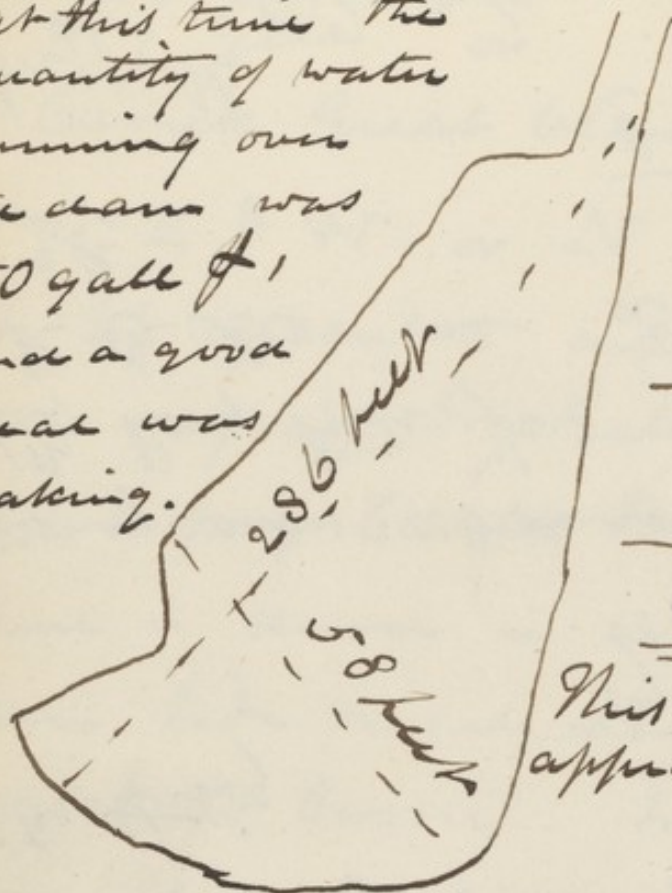 at this time the
quantity of water
running over
dam was
0 gall
and a good
was
aking.
286 feet
58 feet
This